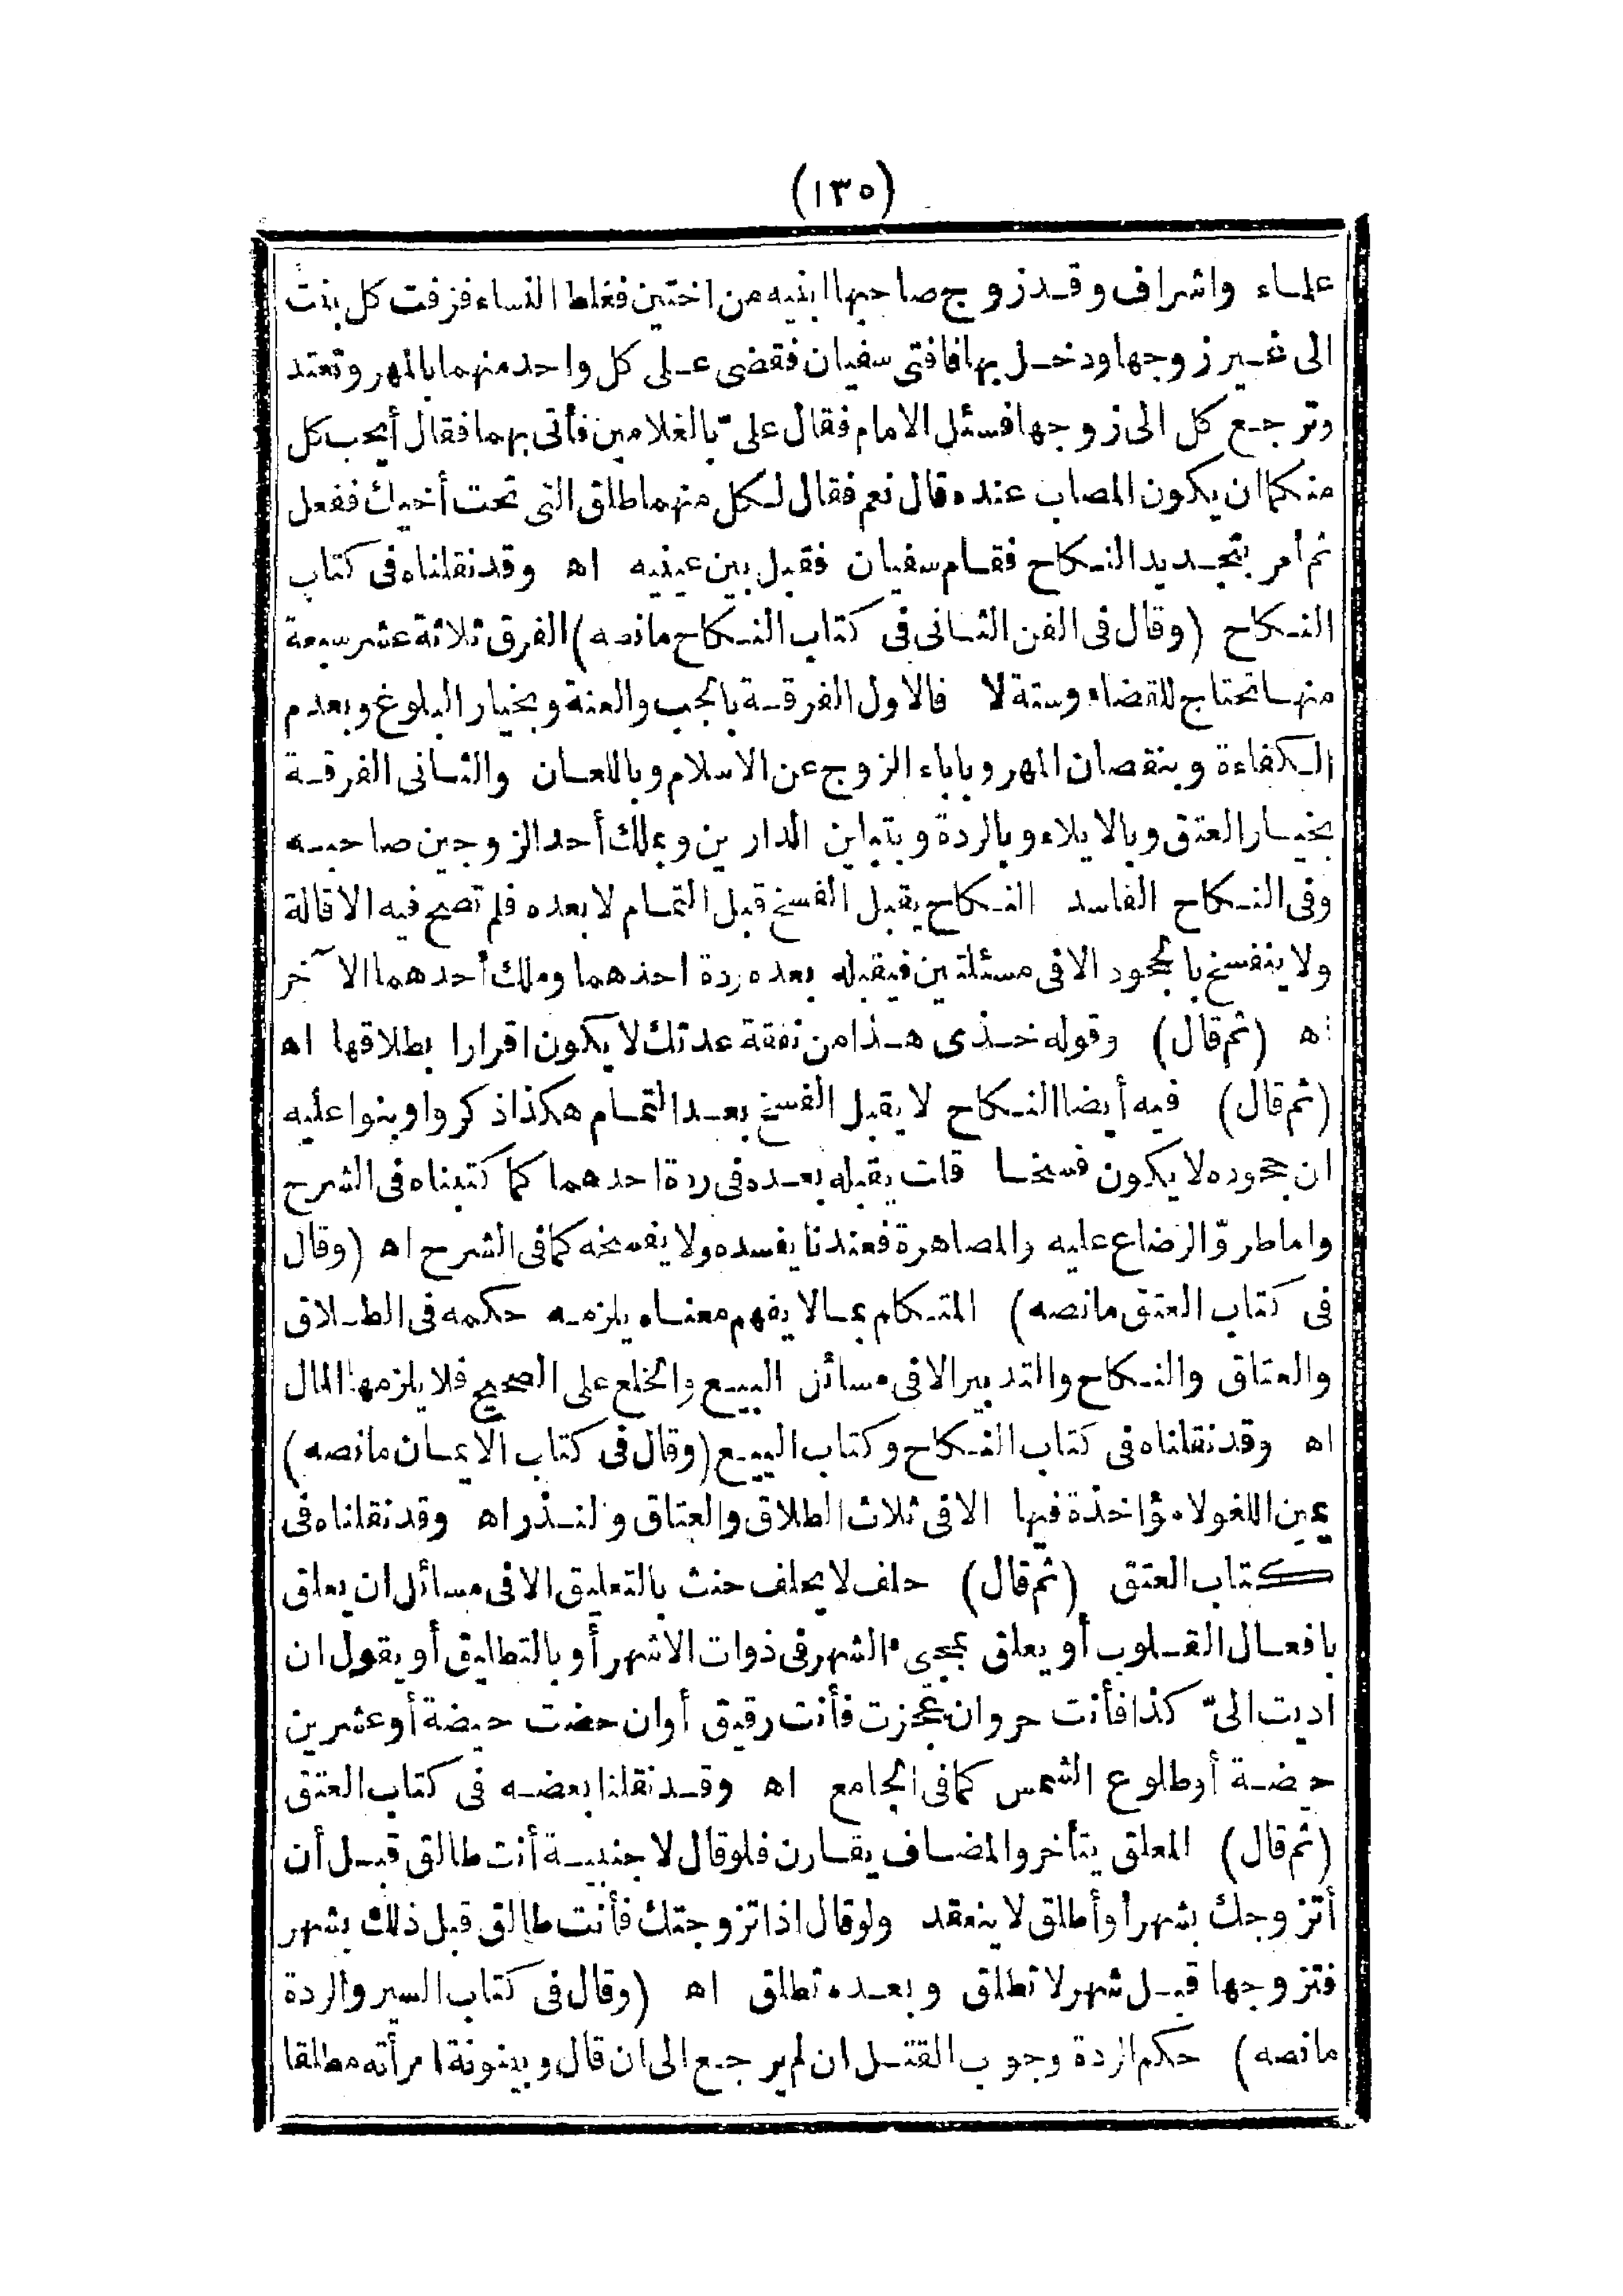 (١٣٥)
علماء واشراف وقد زوج صاحبها ابنيه من اختين فغلط النساء فزفت كل بنت
الى غير زوجها ودخل بها فافتى سفيان فقضى على كل واحد منهما بالمهر وتعتد
وترجع كل الى زوجها فسئل الامام فقال علىّ بالغلامين فأتى بهما فقال أيحب كل
منكما ان يكون المصاب عنده قال نعم فقال لكل منهما طلق التى تحت أخيك ففعل
ثم أمر بتجديد النكاح فقام سفيان فقبل بين عينيه اه وقد نقلناه فى كتاب
النكاح (وقال فى الفن الثانى فى كتاب النكاح مانصه) الفرق ثلاثة عشر سبعة
منها تحتاج للقضاء وستة لا فالاول الفرقة بالجب والعنة وبخيار البلوغ وبعدم
الكفاءة وبنقصان المهر وباباء الزوج عن الاسلام وباللعان والثانى الفرقة
بخيار العتق وبالايلاء وبالردة وبتباين الدارين وبملك أحد الزوجين صاحبه
وفى النكاح الفاسد النكاح يقبل الفسخ قبل التمام لا بعده فلم تصح فيه الاقالة
ولا ينفسخ بالجحود الا فى مسئلتين فيقبله بعده ردة احدهما وملك أحدهما الآخر
اه (ثم قال) وقوله خذى هذا من نفقة عدتك لا يكون اقرارا بطلاقها اه
(ثم قال) فيه أيضا النكاح لا يقبل الفسخ بعد التمام هكذا ذكروا وبنوا عليه
ان جحوده لا يكون فسخا قلت يقبله بعده فى ردة احدهما كما كتبناه فى الشرح
واما طروّ الرضاع عليه والمصاهرة فعندنا يفسده ولا يفسخه كما فى الشرح اه (وقال
فى كتاب العتق مانصه) المتكلم بما لا يفهم معناه يلزمه حكمه فى الطلاق
والعتاق والنكاح والتدبير الا فى مسائل البيع والخلع على الصحيح فلا يلزمها المال
اه وقد نقلناه فى كتاب النكاح وكتاب البيع (وقال فى كتاب الايمان مانصه)
يمين اللغو لا مؤاخذة فيها الا فى ثلاث الطلاق والعتاق والنذر اه وقد نقلناه فى
كتاب العتق (ثم قال) حلف لا يحلف حنث بالتعليق الا فى مسائل ان يعلق
بافعال القلوب أو يعلق بمجىء الشهر فى ذوات الاشهر أو بالتطليق أو يقول ان
اديت الىّ كذا فأنت حر وان عجزت فأنت رقيق أو ان حضت حيضة أو عشرين
حيضة أو طلوع الشمس كما فى الجامع اه وقد نقلنا بعضه فى كتاب العتق
(ثم قال) المعلق يتأخر والمضاف يقارن فلو قال لاجنبية أنت طالق قبل أن
أتزوجك بشهر أو أطلق لا ينعقد ولو قال اذا تزوجتك فأنت طالق قبل ذلك بشهر
فتزوجها قبل شهر لا تطلق وبعده تطلق اه (وقال فى كتاب السير والردة
مانصه) حكم الردة وجوب القتل ان لم يرجع الى ان قال وبينونة امرأته مطلقا